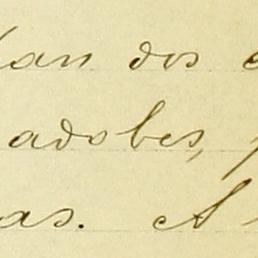 lan dos
adobes,
as. A